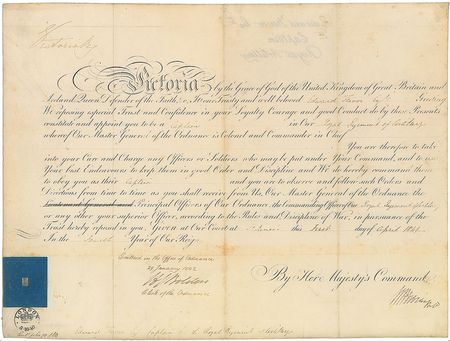 Victoria R
Victoria by the Grace of God of the United Kingdom of Great Britain and
Ireland Queen Defender of the Faith &c. To our Trusty and well beloved Edward Greeting
We reposing especial Trust and Confidence in your Loyalty Courage and good Conduct do by these Presents
constitute and appoint you to be a Captain in Our Royal Regiment of Artillery
whereof Our Master General of the Ordnance is Colonel and Commander in Chief
You are therefore to take
into your Care and Charge any Officers or Soldiers who may be put under Your Command, and to use
Your best Endeavours to keep them in good Order and Discipline and We do hereby command them
to obey you as their Captain and you are to observe and follow such Orders and
Directions from time to time as you shall receive from Us, Our Master General of the Ordnance the
Lieutenant General and Principal Officers of Our Ordnance, the Commanding Officer of Our Royal Regiment of Artillery
or any other your superior Officer, according to the Rules and Discipline of War, in pursuance of the
Trust hereby reposed in you. Given at Our Court at this First day of April
In the Year of Our Reign
Entered in the Office of Ordnance
January
Clerk of the Ordnance
By Her Majesty's Command
LONDON
Captain Royal Regiment Artillery